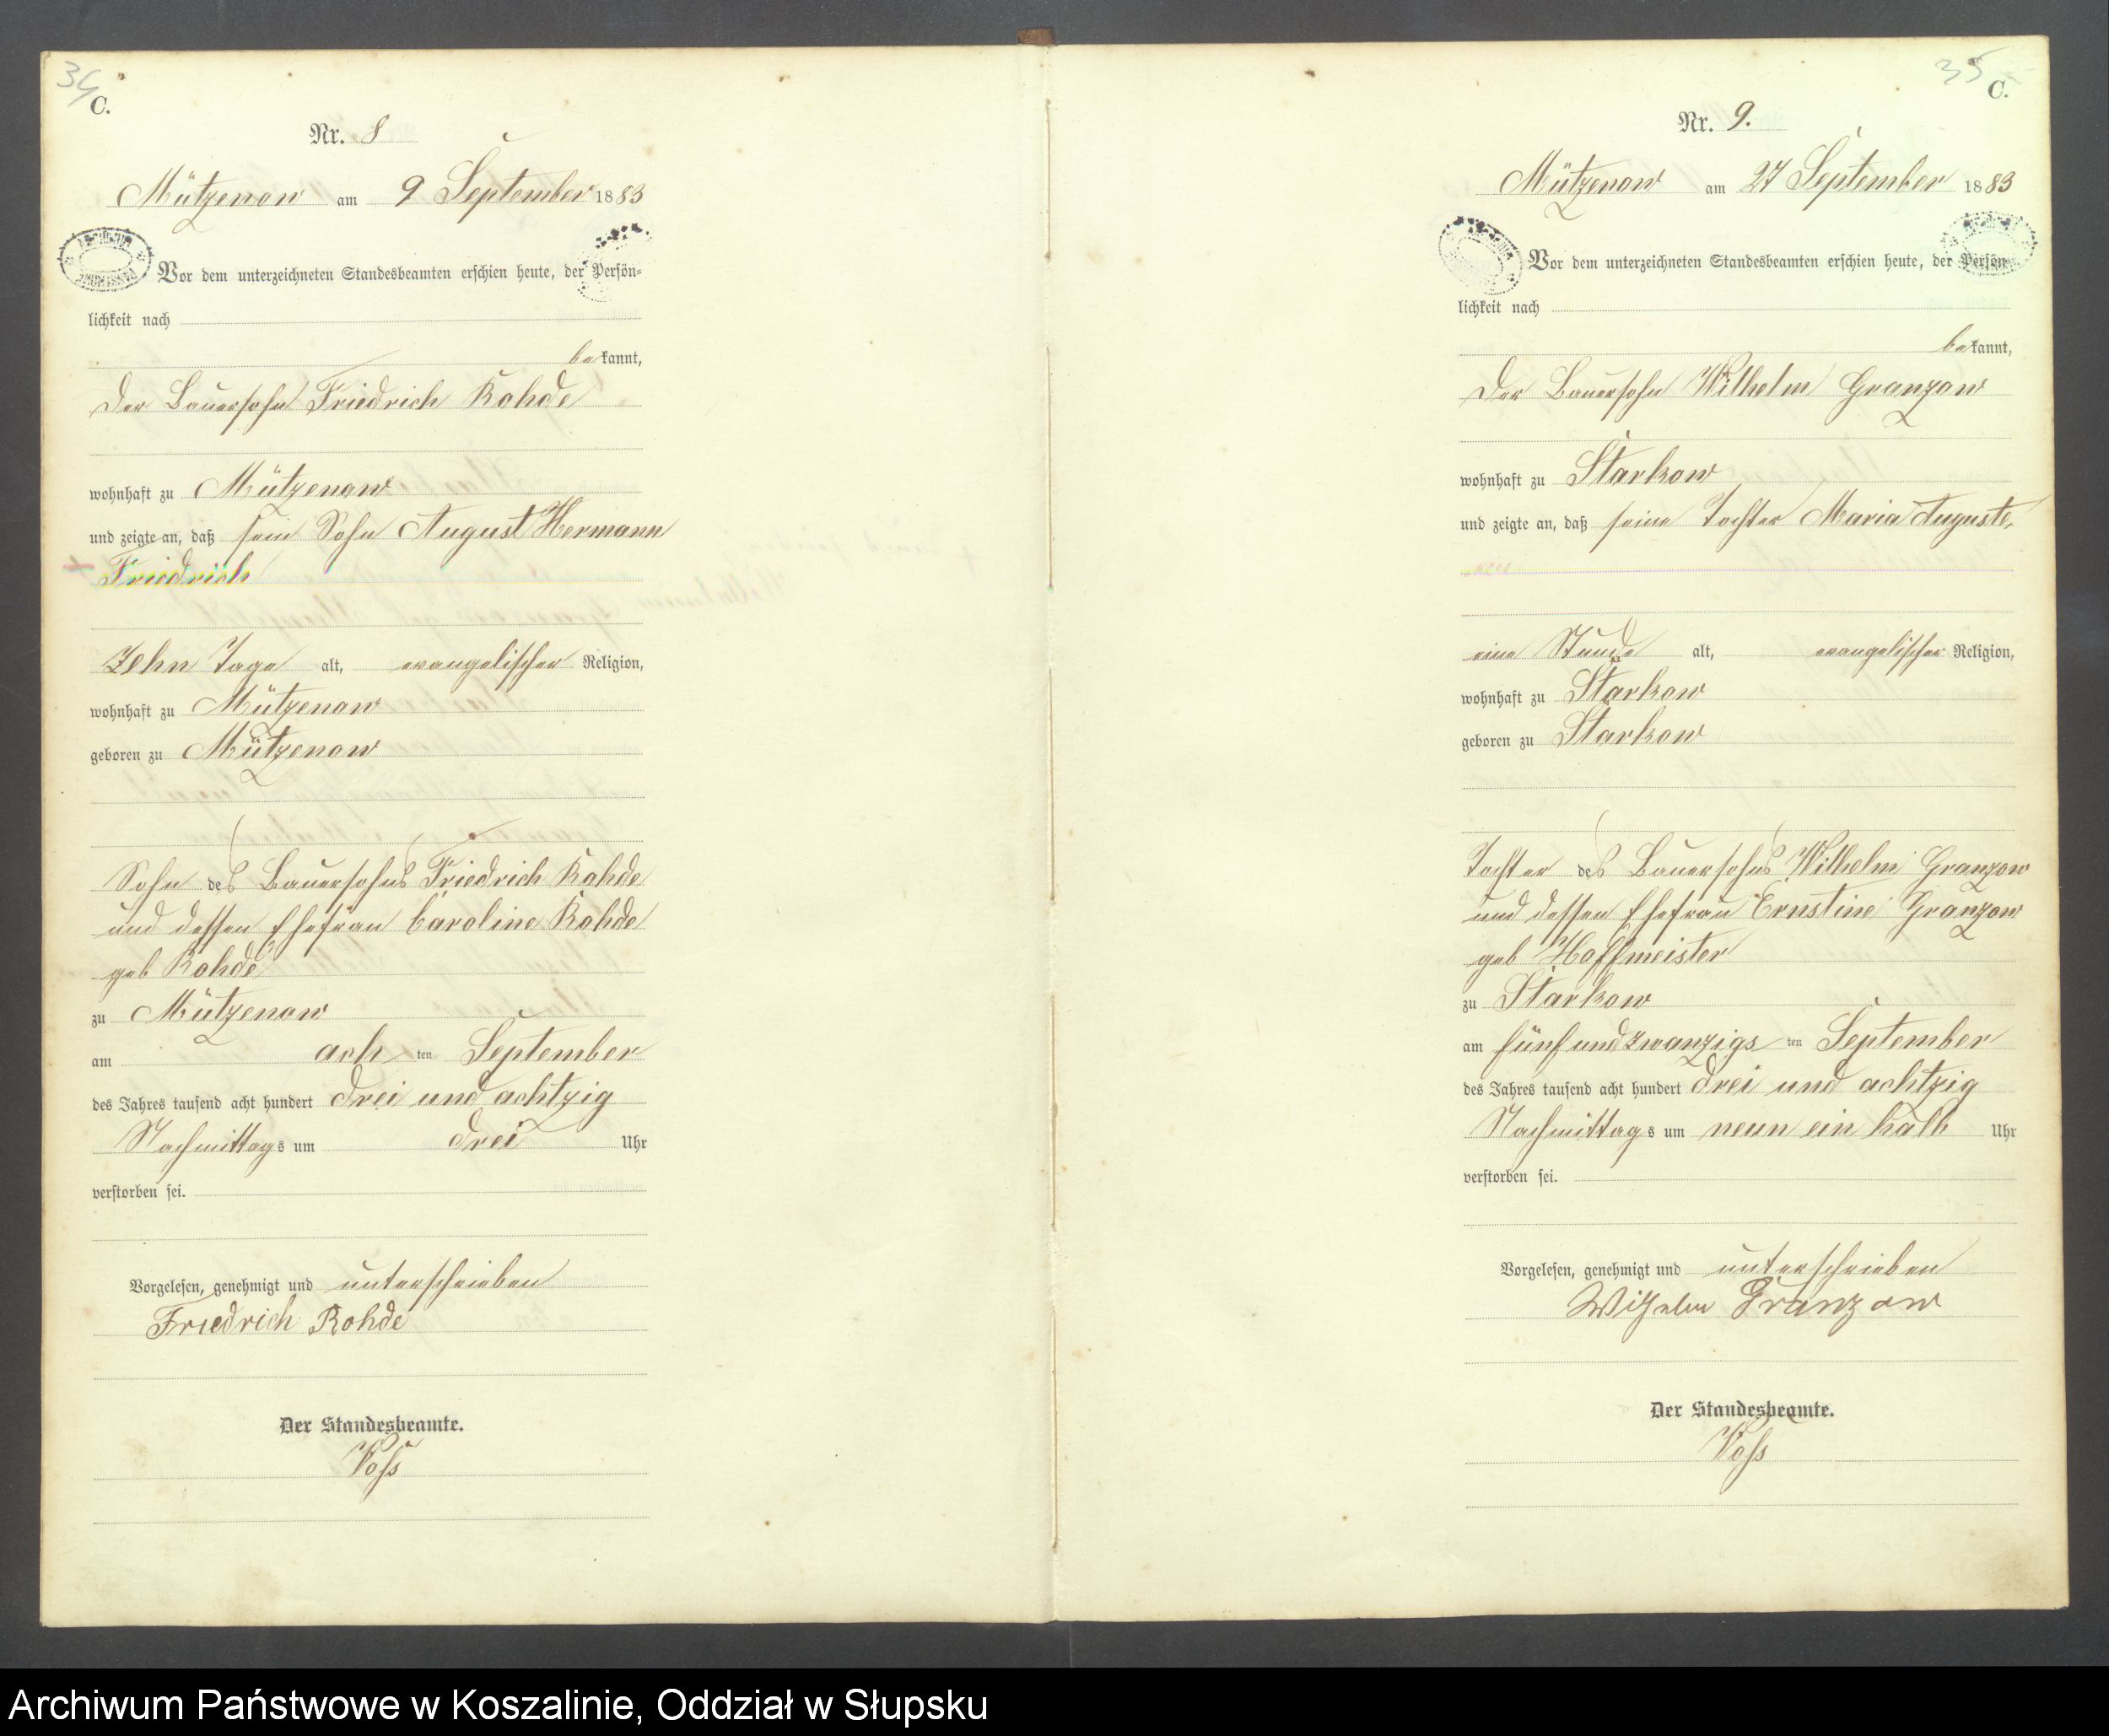 34
C.
Nr. 8
Mützenow am 9 September 1883
Vor dem unterzeichneten Standesbeamten erschien heute, der Persön=
lichkeit nach
bekannt,
der Bauersohn Friedrich Rohde
wohnhaft zu Mützenow
und zeigte an, daß sein Sohn August Hermann
Friedrich
Zehn Tage alt, evangelischer Religion,
wohnhaft zu Mützenow
geboren zu Mützenow
Sohn des Bauersohns Friedrich Rohde
und dessen Ehefrau Caroline Rohde
geb Rohde
zu Mützenow
am achten September
des Jahres tausend acht hundert drei und achtzig
Nachmittags um drei Uhr
verstorben sei.
Vorgelesen, genehmigt und unterschrieben
Friedrich Rohde
Der Standesbeamte.
Voß
35
C.
Nr. 9.
Mützenow am 27 September 1883
Vor dem unterzeichneten Standesbeamten erschien heute, der Persön=
lichkeit nach
bekannt,
der Bauersohn Wilhelm Granzow
wohnhaft zu Starkow
und zeigte an, daß seine Tochter Maria Auguste,
eine Stunde alt, evangelischer Religion,
wohnhaft zu Starkow
geboren zu Starkow
Tochter des Bauersohns Wilhelm Granzow
und dessen Ehefrau Ernstine Granzow
geb Hoffmeister
zu Starkow
am fünf und zwanzigsten September
des Jahres tausend acht hundert drei und achtzig
Nachmittags um neun ein halb Uhr
verstorben sei.
Vorgelesen, genehmigt und unterschrieben
Wilhelm Granzow
Der Standesbeamte.
Voß
Archiwum Państwowe w Koszalinie, Oddział w Słupsku